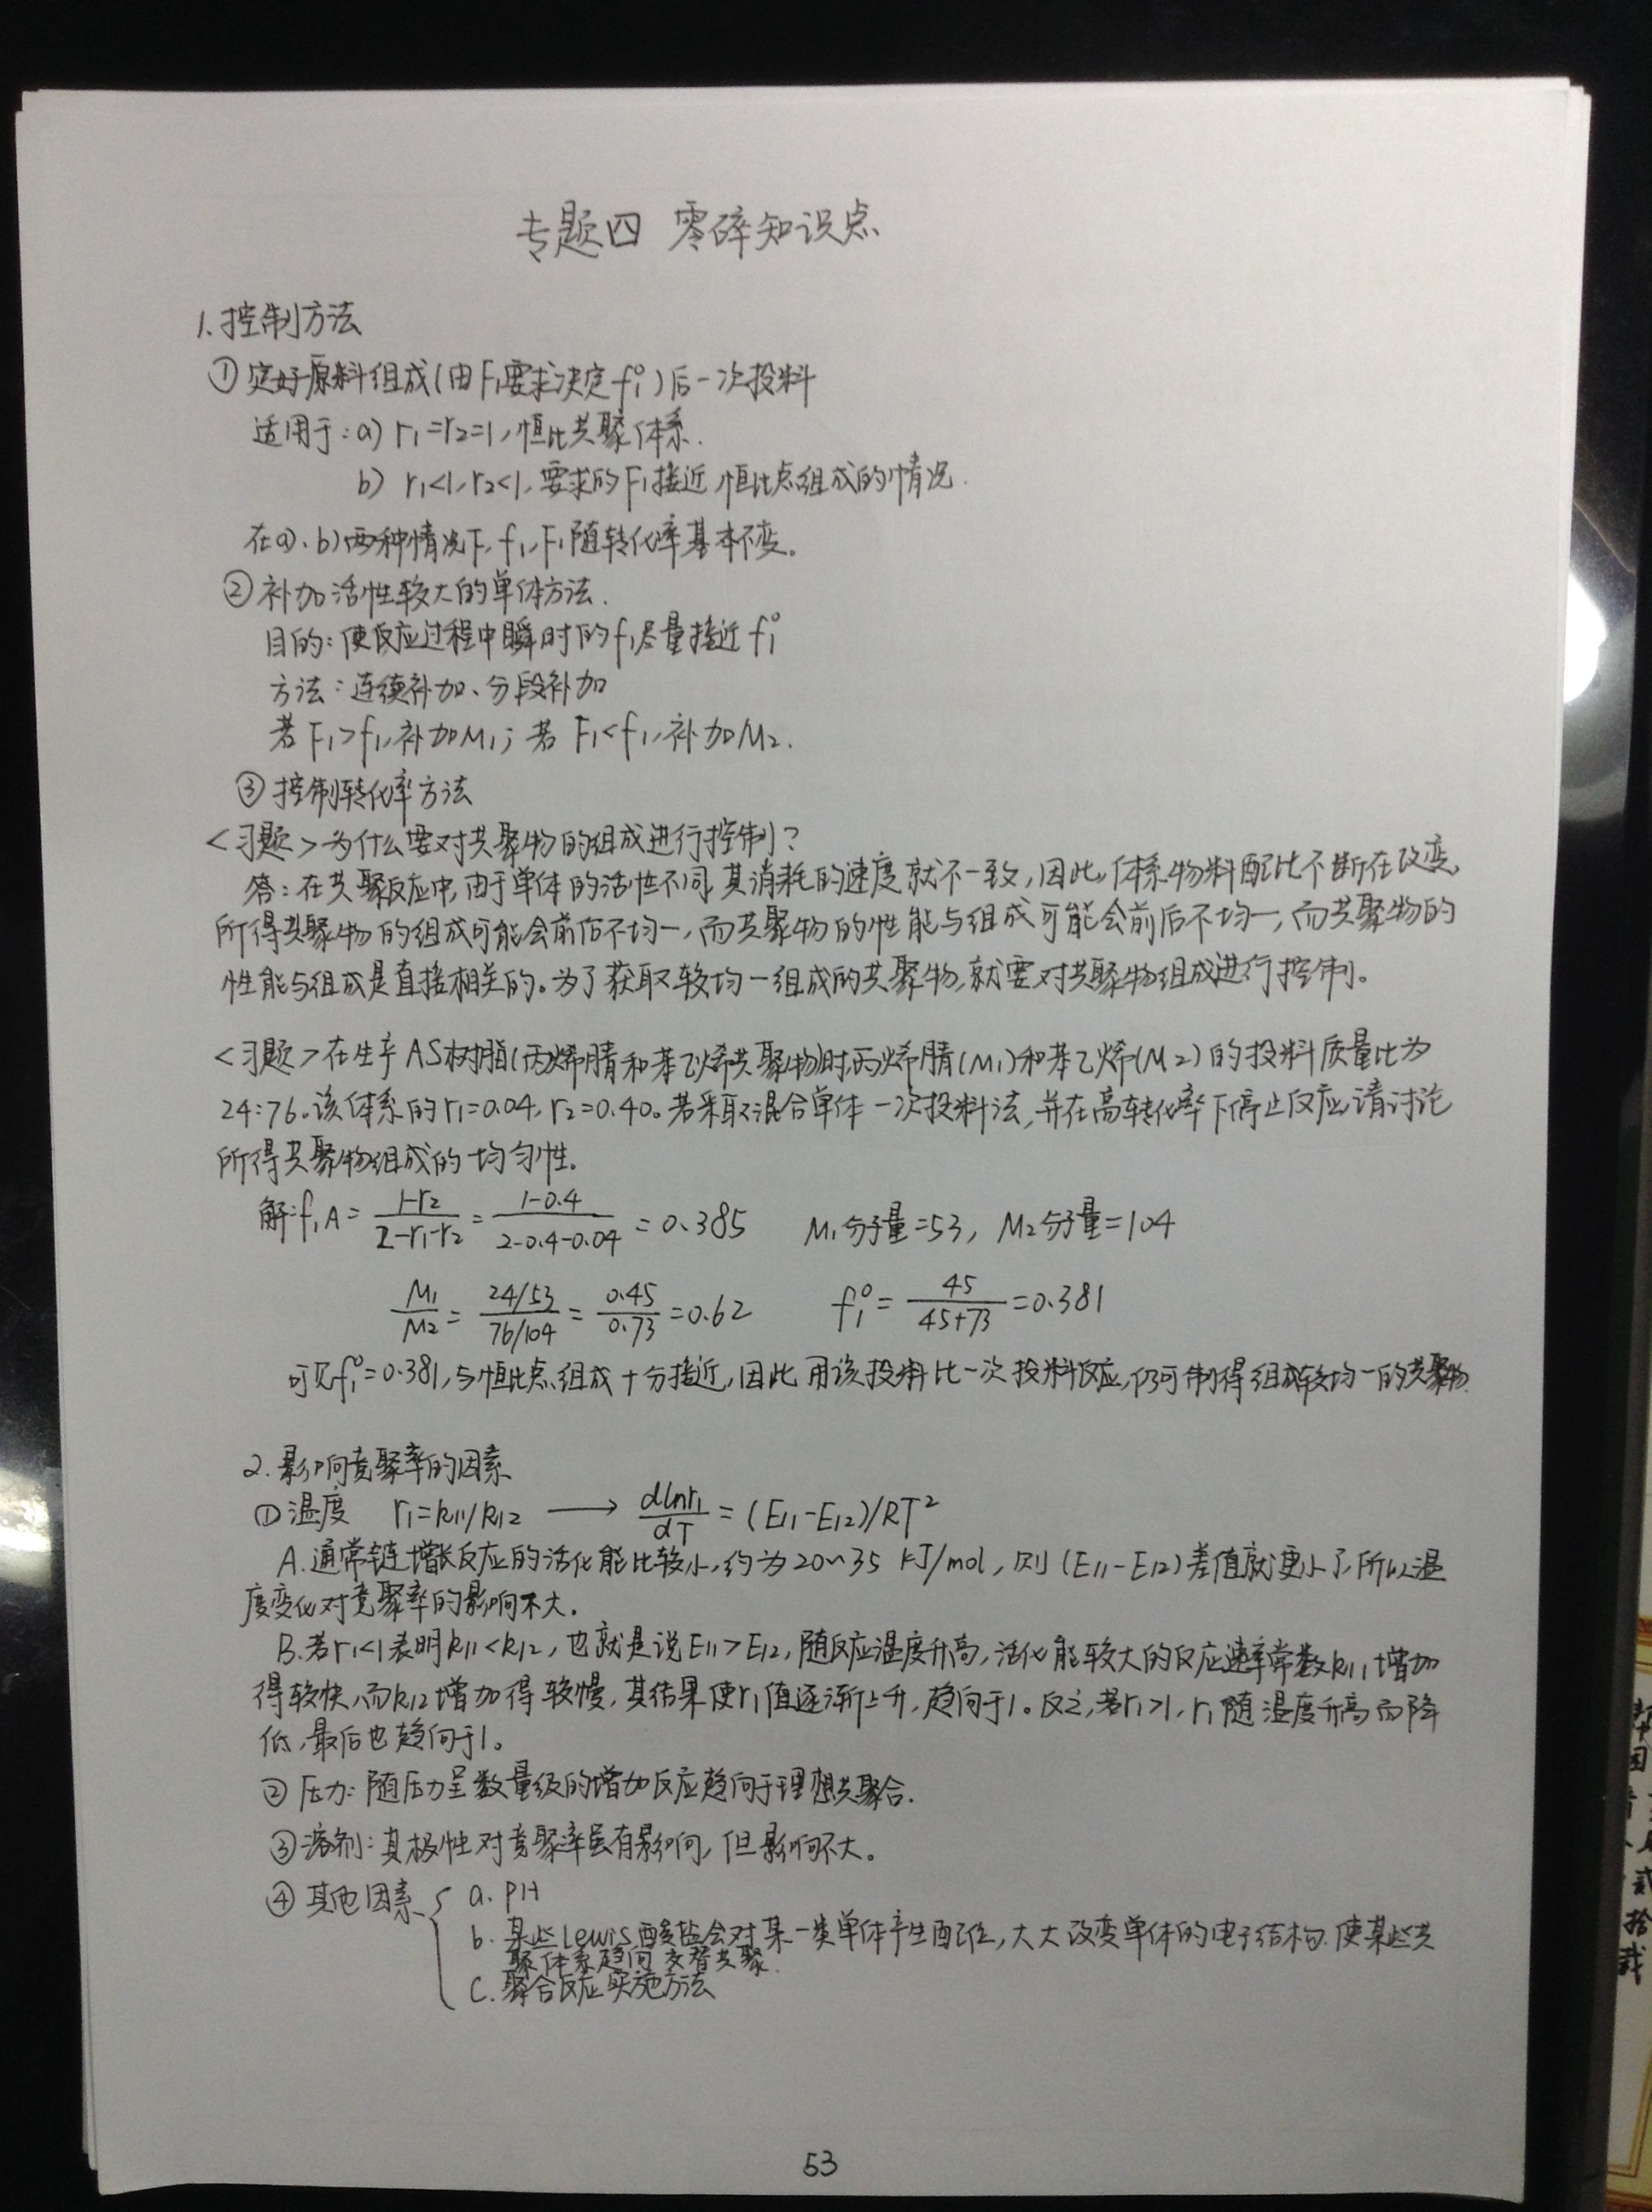 专题四 零碎知识点
1.控制方法
①定好原料组成(由F₁要求决定f₁⁰)后一次投料
适用于:a) r₁=r₂=1,恒比共聚体系.
b) r₁<1,r₂<1,要求的F₁接近恒比点组成的情况.
在a)、b)两种情况下,f₁,F₁随转化率基本不变。
②补加活性较大的单体方法.
目的:使反应过程中瞬时的f₁尽量接近f₁⁰
方法:连续补加、分段补加
若F₁>f₁,补加M₁;若F₁<f₁,补加M₂.
③控制转化率方法
<习题>为什么要对共聚物的组成进行控制?
答:在共聚反应中,由于单体的活性不同,其消耗的速度就不一致,因此,体系物料配比不断在改变,
所得共聚物的组成可能会前后不均一,而共聚物的性能与组成可能会前后不均一,而共聚物的
性能与组成是直接相关的。为了获取较均一组成的共聚物,就要对共聚物组成进行控制。
<习题>在生产AS树脂(丙烯腈和苯乙烯共聚物)时,丙烯腈(M₁)和苯乙烯(M2)的投料质量比为
24:76。该体系的r₁=0.04,r₂=0.40。若采取混合单体一次投料法,并在高转化率下停止反应,请讨论
所得共聚物组成的均匀性。
解:f₁A=(1-r₂)/(2-r₁-r₂)=(1-0.4)/(2-0.4-0.04)=0.385 M₁分子量=53, M₂分子量=104
M₁/M₂=(24/53)/(76/104)=0.45/0.73=0.62 f₁⁰=45/(45+73)=0.381
可见f₁⁰=0.381,与恒比点组成十分接近,因此用该投料比一次投料反应,仍可制得组成较均一的共聚物.
2.影响竞聚率的因素
①温度 r₁=k₁₁/k₁₂ ⟶ dlnr₁/dT=(E₁₁-E₁₂)/RT²
A.通常链增长反应的活化能比较小,约为20~35 kJ/mol,则(E₁₁-E₁₂)差值就更小了,所以温
度变化对竞聚率的影响不大.
B.若r₁<1表明k₁₁<k₁₂,也就是说E₁₁>E₁₂,随反应温度升高,活化能较大的反应速率常数k₁₁增加
得较快,而k₁₂增加得较慢,其结果使r₁值逐渐上升,趋向于1。反之,若r₁>1,r₁随温度升高而降
低,最后也趋向于1。
②压力:随压力呈数量级的增加反应趋向于理想共聚合.
③溶剂:其极性对竞聚率虽有影响,但影响不大。
④其他因素{ a.PH
b.某些Lewis酸盐会对某一类单体产生配位,大大改变单体的电子结构.使某些共
聚体系趋向交替共聚.
C.聚合反应实施方法
53